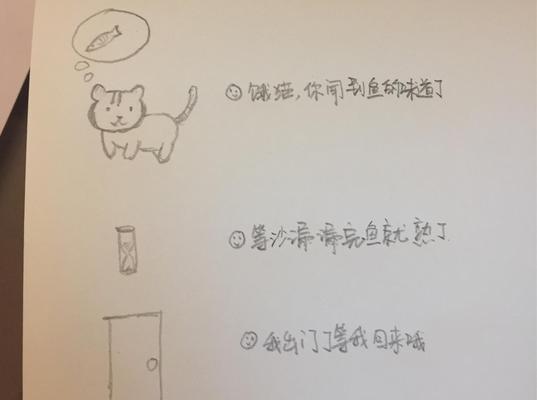 饿猫,你闻到鱼的味道了
等沙漏漏完鱼就熟了
我出门了等我回来哦